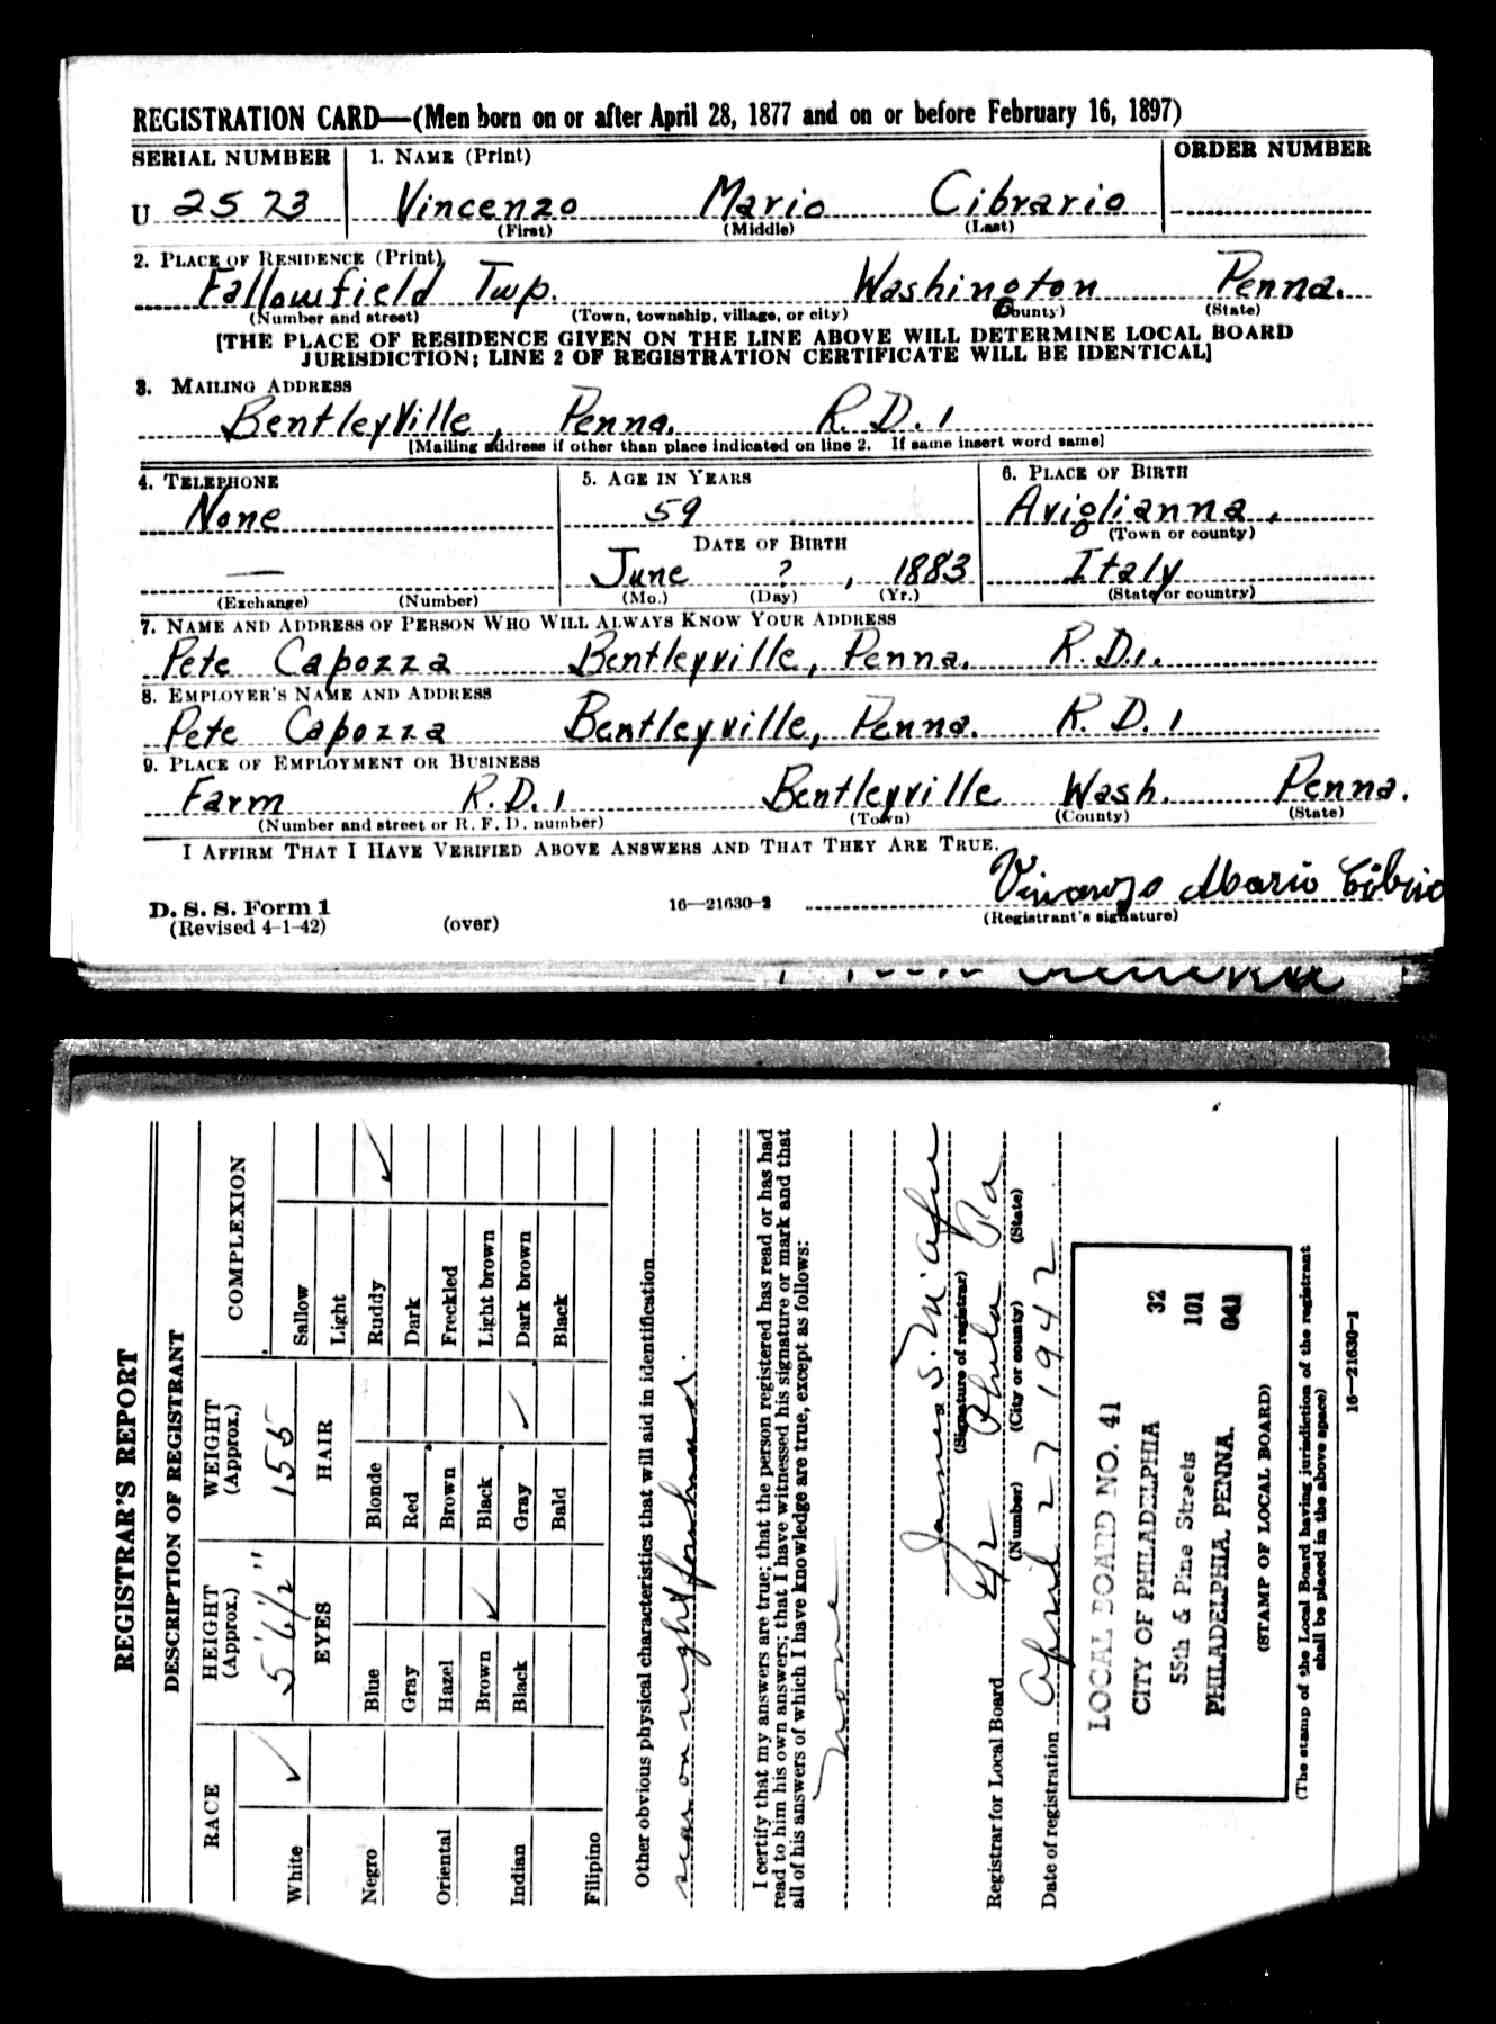 REGISTRATION CARD—(Men born on or after April 28, 1877 and on or before February 16, 1897)
SERIAL NUMBER 1. NAME (Print) ORDER NUMBER
U 2573 Vincenzo Mario Cibrario
(First) (Middle) (Last)
2. PLACE OF RESIDENCE (Print)
Fallowfield Twp. Washington Penna.
(Number and street) (Town, township, village, or city) (County) (State)
[THE PLACE OF RESIDENCE GIVEN ON THE LINE ABOVE WILL DETERMINE LOCAL BOARD
JURISDICTION; LINE 2 OF REGISTRATION CERTIFICATE WILL BE IDENTICAL]
3. MAILING ADDRESS
BentleyVille, Penna. R.D. 1
[Mailing address if other than place indicated on line 2. If same insert word same]
4. TELEPHONE 5. AGE IN YEARS 6. PLACE OF BIRTH
None 59 Aviglianna,
(Town or county)
DATE OF BIRTH
— June ?, 1883 Italy
(Exchange) (Number) (Mo.) (Day) (Yr.) (State or country)
7. NAME AND ADDRESS OF PERSON WHO WILL ALWAYS KNOW YOUR ADDRESS
Pete Capozza Bentleyville, Penna. R.D.1.
8. EMPLOYER'S NAME AND ADDRESS
Pete Capozza Bentleyville, Penna. R.D.1
9. PLACE OF EMPLOYMENT OR BUSINESS
Farm R.D.1 Bentleyville Wash. Penna.
(Number and street or R. F. D. number) (Town) (County) (State)
I AFFIRM THAT I HAVE VERIFIED ABOVE ANSWERS AND THAT THEY ARE TRUE.
Mario
D. S. S. Form 1 16—21630-2 (Registrant's signature)
(Revised 4-1-42) (over)
REGISTRAR'S REPORT
DESCRIPTION OF REGISTRANT
RACE HEIGHT (Approx.) WEIGHT (Approx.) COMPLEXION
White ✓ 5' 6 1/2" 155 Sallow
EYES HAIR Light
Negro Blue Blonde Ruddy ✓
Gray Red Dark
Oriental Hazel Brown Freckled
Brown ✓ Black Light brown
Indian Black Gray ✓ Dark brown
Bald Black
Filipino
Other obvious physical characteristics that will aid in identification
scar on right forehead.
I certify that my answers are true; that the person registered has read or has had
read to him his own answers; that I have witnessed his signature or mark and that
all of his answers of which I have knowledge are true, except as follows:
none
James S.
(Signature of registrar)
Registrar for Local Board 42 Phila Pa
(Number) (City or county) (State)
Date of registration April 27 1942
LOCAL BOARD NO. 41 32
CITY OF PHILADELPHIA 101
55th & Pine Streets 041
PHILADELPHIA, PENNA.
(STAMP OF LOCAL BOARD)
(The stamp of the Local Board having jurisdiction of the registrant
shall be placed in the above space)
16—21630-1